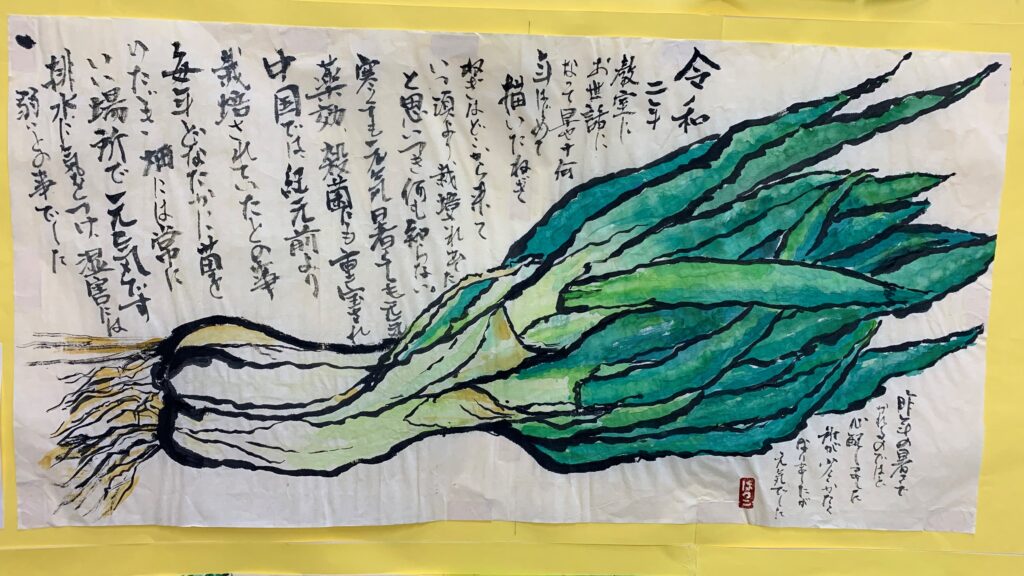 令和
二年
教室に
お世話に
なって早や十何
年はじめて
描いたねぎ
葱はどこから来て
いつ頃より栽培されたか
と思いつき何も知らない
寒くても元気暑くても元気
薬効、殺菌にも重宝され
中国では紀元前より
栽培されていたとの事
毎年どなたかに苗を
いただき畑には常に
いい場所で元気です
排水に気をつけ湿害には
弱いとの事でした
昨年の暑さで
心配しました
元気でした
はつこ